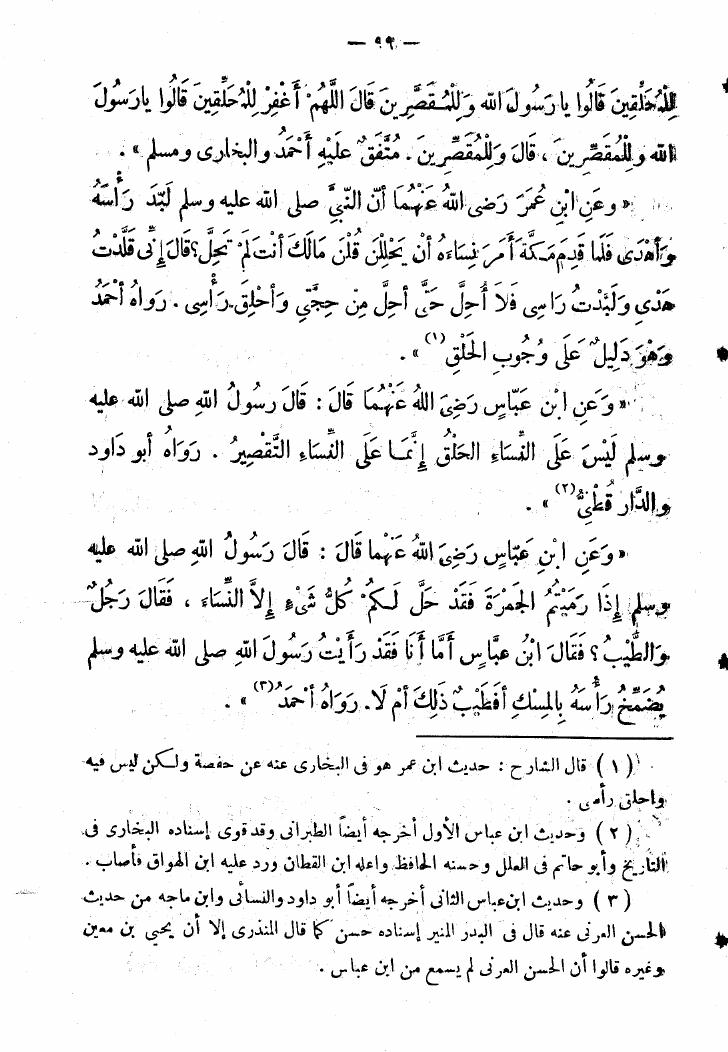 — ٩٦ —
لِلْمُحَلِّقِينَ قَالُوا يا رَسُولَ الله وَلِلْمُقَصِّرِينَ قَالَ اللَّهُمْ أَغْفِرْ لِلْمُحَلِّقِينَ قَالُوا يا رَسُولَ
الله وَلِلْمُقَصِّرِينَ ، قَالَ وَلِلْمُقَصِّرِينَ . مُتَّفَقٌ عَلَيْهِ أَحْمَدُ والبخارى ومسلم » .
« وعَنِ ابْنِ عُمَرَ رَضى اللهُ عَنْهُمَا أنّ النّبىَّ صلى الله عليه وسلم لَبَّدَ رَأْسَهُ
وَأَهْدَى فَلَمَّا قَدِمَ مَكَّةَ أَمَرَ نِسَاءَهُ أَنْ يَحْلِلْنَ قُلْنَ مَالَكَ أَنْتَ لَمْ تَحِلَّ؟ قَالَ إِنِّى قَلَّدْتُ
هَدْيِى وَلَبَّدْتُ رَاسِى فَلاَ أُحِلَّ حَتَّى أحِلَّ مِنْ حِجَّتِي وَأَحْلِقَ رَأْسِى . رَوَاهُ أَحْمَدُ
وَهُوَ دَلِيلٌ عَلَى وُجُوبِ الحَلْقِ (١) » .
« وَعَنِ ابْنِ عَبَّاسٍ رَضِىَ اللهُ عَنْهُمَا قَالَ : قَالَ رسُولُ اللهِ صلى الله عليه
وسلم لَيْسَ عَلَى النِّسَاءِ الحَلْقُ إِنَّمَا عَلَى النِّسَاءِ التَّقْصِيرُ . رَوَاهُ أبو دَاود
والدَّار قُطْنِىُّ (٢) » .
« وعَنِ ابْنِ عَبّاسٍ رَضِىَ اللهُ عَنْهِما قَالَ : قَالَ رَسُولُ اللهِ صلى الله عليه
وسلم إِذَا رَمَيْتُمُ الجَمْرَةَ فَقَدْ حَلَّ لَكُمْ كُلُّ شَىْءٍ إِلاَّ النِّسَاءَ ، فَقَالَ رَجُلٌ
وَالطِّيْبُ؟ فَقَالَ ابْنُ عبَّاسٍ أَمَّا أَنَا فَقَدْ رَأَيْتُ رَسُولَ اللهِ صلى الله عليه وسلم
يُضَمِّخُ رَأْسَهُ بِالمِسْكِ أَفَطِيْبٌ ذَلِكَ أَمْ لَا. رَوَاهُ أَحْمَدُ (٣) » .
(١) قال الشارح : حديث ابن عمر هو فى البخارى عنه عن حفصة ولكن ليس فيه
واحلق رأسى .
(٢) وحديث ابن عباس الأول أخرجه أيضاً الطبرانى وقد قوى إسناده البخارى فى
التاريخ وأبو حاتم فى العلل وحسنه الحافظ واعله ابن القطان ورد عليه ابن المواق فأصاب .
(٣) وحديث ابن عباس الثانى أخرجه أيضاً أبو داود والنسائى وابن ماجه من حديث
الحسن العرنى عنه قال فى البدر المنير إسناده حسن كما قال المنذرى إلا أن يحيي بن معين
وغيره قالوا أن الحسن العرنى لم يسمع من ابن عباس .